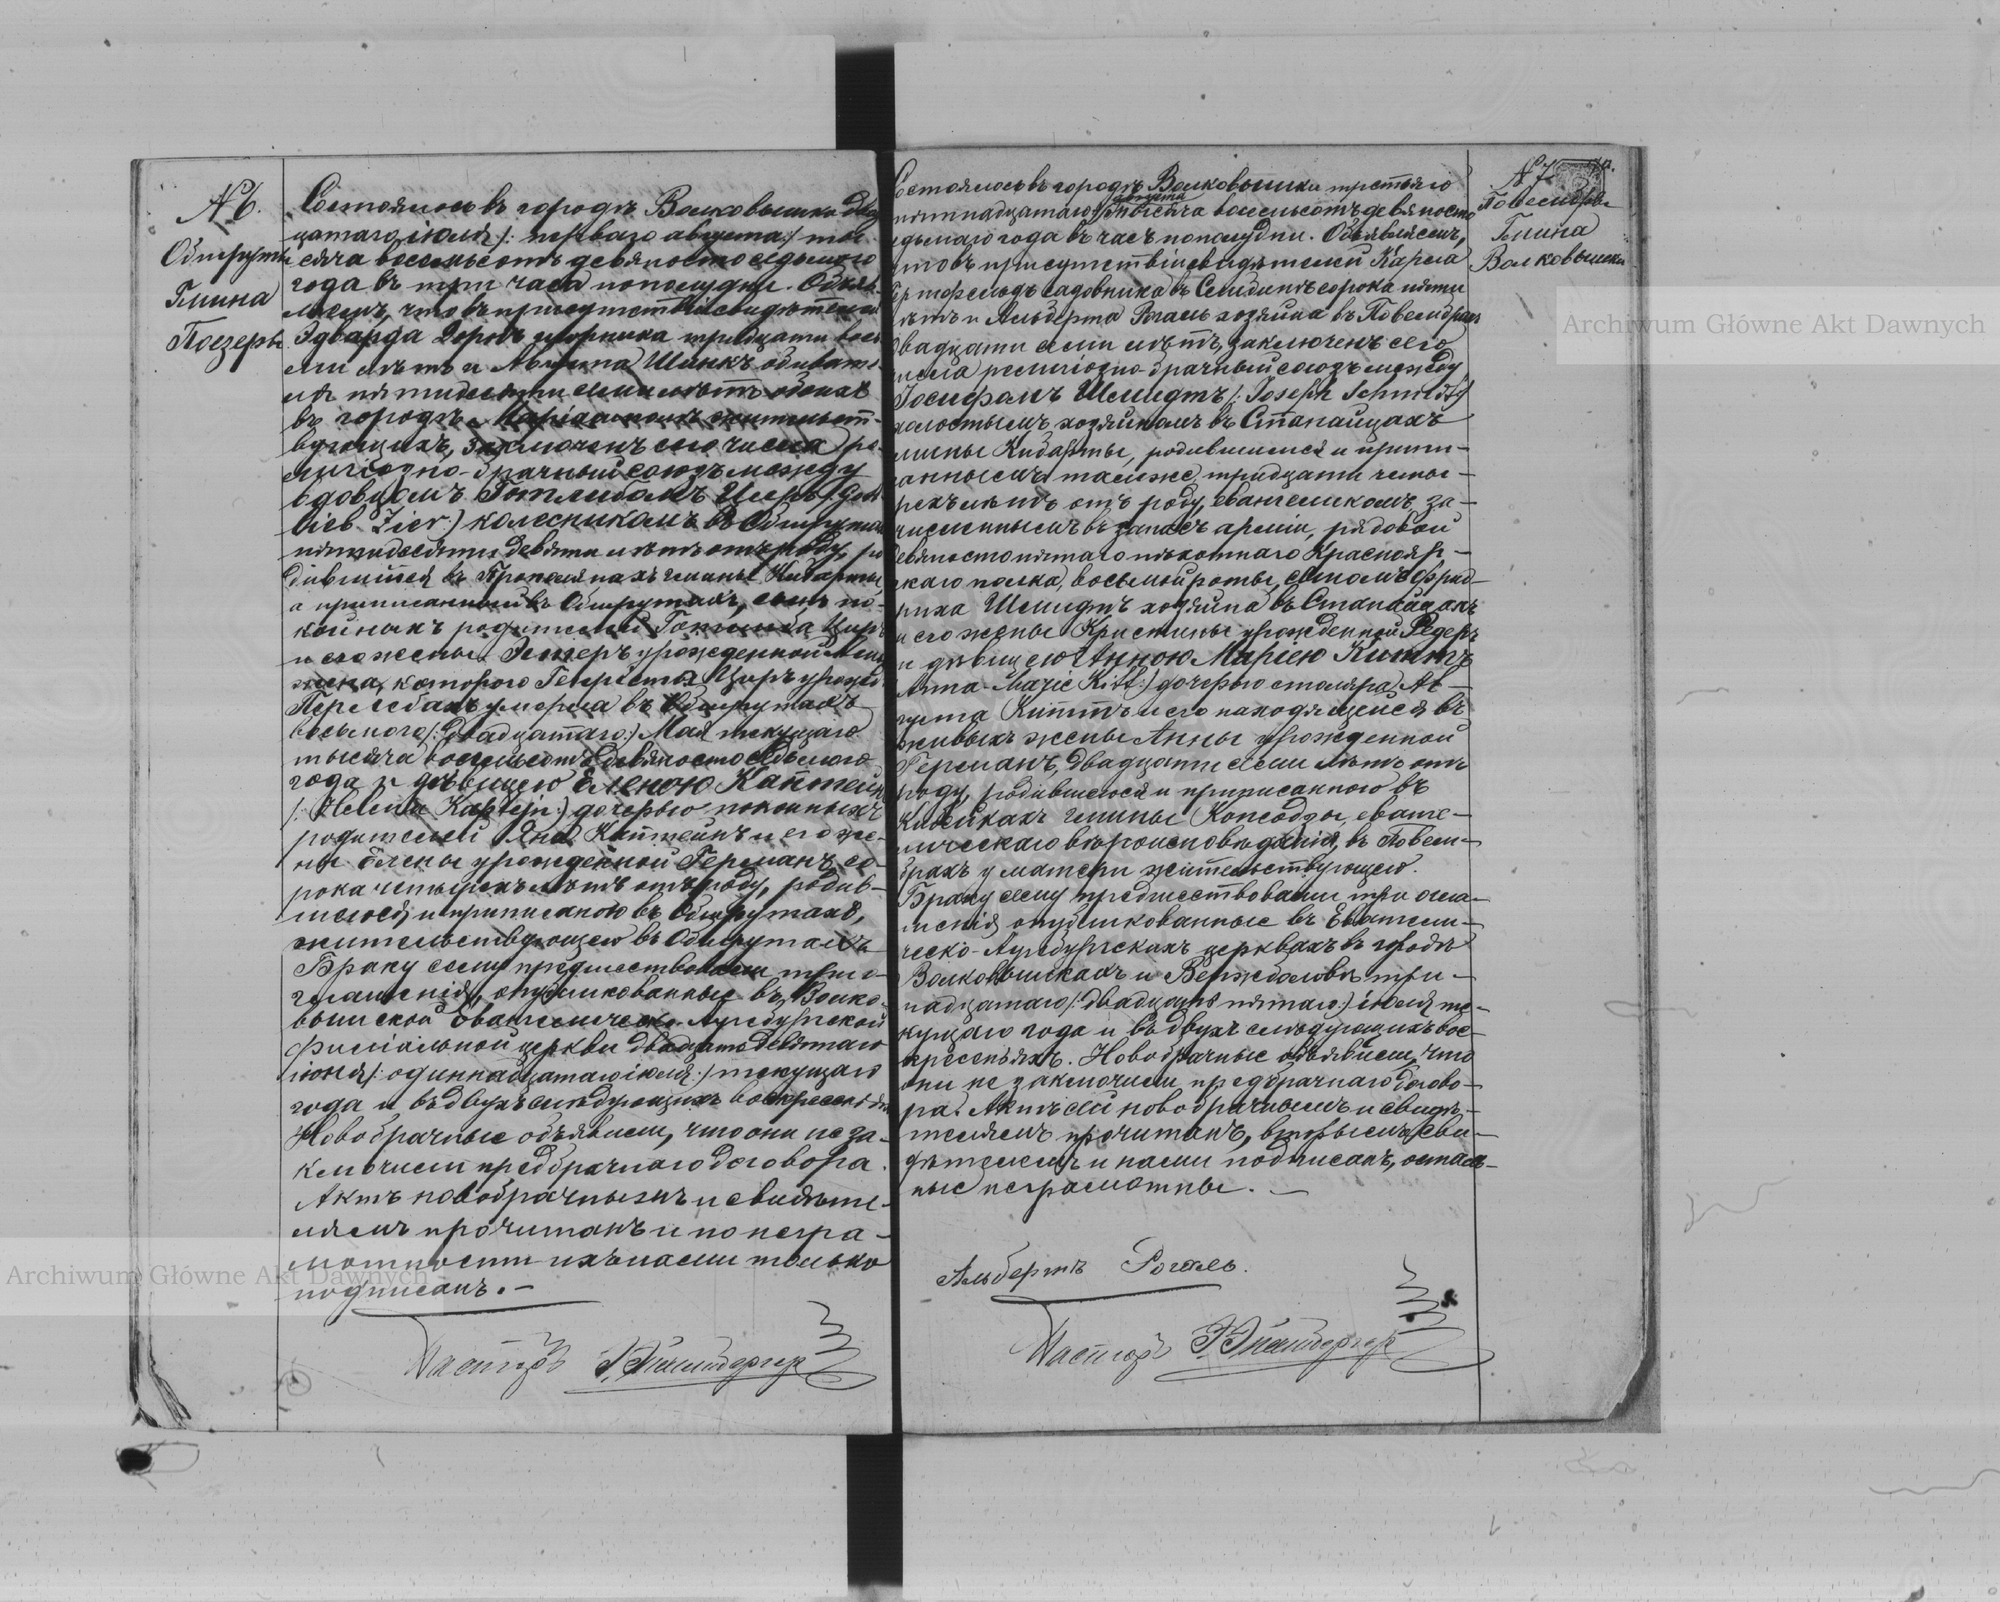 № 6.
Обшруты
Гмина
Поезеры
Состоялось въ городѣ Волковышки двад
цатаго іюля /: перваго августа :/ ты-
сяча восемьсотъ девяносто седьмого
года въ три часа пополудни. Объяв-
ляемъ, что въ присутствіи свидѣтелей
Эдварда тридцати вось
ми лѣтъ и Августа Шинкъ
пятидесяти семи лѣтъ обоихъ
въ городѣ жительст-
вующихъ, заключенъ сего числа ре-
лигіозно-брачный союзъ между
вдовцомъ Готлибомъ Циръ /: Gott
lieb Zier :/ колесникомъ въ Обшрутахъ
пятидесяти девяти лѣтъ отъ роду, ро
дившійся въ гмины Кибарты
а приписанный въ Обшрутахъ, сынъ по-
койныхъ родителей Готлиба Циръ
и его жены Эстеръ урожденной
котораго Генріета Циръ урожд
умерла въ Обшрутахъ
восьмого /: двадцатаго :/ Мая текущаго
тысяча восемьсотъ девяносто седьмого
года и дѣвицею Еленою Каптейнъ
/: Helena Kaptejn :/ дочерью покойныхъ
родителей Яна Каптейнъ и его же-
ны Елены урожденной Германъ, со-
рока четырехъ лѣтъ отъ роду, родив-
шеюся и приписаною въ Обшрутахъ,
жительствующею въ Обшрутахъ
Браку сему предшествовали три о-
глашенія, опубликованные въ Волко-
вышской Евангелическо-Аугсбургской
филіальной церкви двадцать девятаго
іюня /: одиннадцатаго іюля :/ текущаго
года и въ двухъ слѣдующихъ воскресеньяхъ
Новобрачные объявили, что они не за-
ключили предбрачнаго договора.
Актъ новобрачнымъ и свидѣте-
лямъ прочитанъ и по негра-
мотности ихъ нами только
подписанъ. —
Пасторъ
№ 7
Повембры
Гмина
Волковышки
Состоялось въ городѣ Волковышки третьяго
пятнадцатаго августа тысяча восемьсотъ девяносто
седьмаго года въ часъ пополудни. Объявляемъ,
что въ присутствіи свидѣтелей Карла
садовника въ сорока пяти
лѣтъ и Альберта Рогаль хозяина въ Повембрахъ
двадцати семи лѣтъ, заключенъ сего
числа религіозно-брачный союзъ между
Іосифомъ Шмидтъ /: Joseph Schmidt :/
холостымъ хозяиномъ въ Стапайцахъ
гмины Кибарты, родившимся и припи-
саннымъ тамже, тридцати четы-
рехъ лѣтъ отъ роду, евангеликомъ, за-
численнымъ въ запасъ арміи, рядовой
девяносто пятаго пѣхотнаго Краснояр-
скаго полка, восьмой роты, сыномъ Фрид-
риха Шмидтъ хозяина въ Стапайцахъ
и его жены Кристины урожденной Редеръ
и дѣвицею Анною Маріею Киттъ
Anna-Marie Kitt :/ дочерью столяра Ав-
густа Киттъ и его находящейся въ
живыхъ жены Анны урожденной
Германъ, двадцати семи лѣтъ отъ
роду, родившеюся и приписанною въ
гмины Копсодзы, еванге-
лическаго вѣроисповѣданія, въ Повем-
брахъ у матери жительствующею.
Браку сему предшествовали три огла-
шенія опубликованные въ Евангели-
ческо-Аугсбургскихъ церквахъ въ городѣ
Волковышкахъ и Вержболовѣ три-
надцатаго /: двадцать пятаго :/ іюля те-
кущаго года и въ двухъ слѣдующихъ вос-
кресеньяхъ. Новобрачные объявили, что
они не заключили предбрачнаго догово-
ра. Актъ сей новобрачнымъ и свидѣ-
телямъ прочитанъ, вторымъ сви-
дѣтелемъ и нами подписанъ, осталь-
ные неграмотны. —
Альбертъ Рогаль.
Пасторъ
Archiwum Główne Akt Dawnych
Archiwum Główne Akt Dawnych